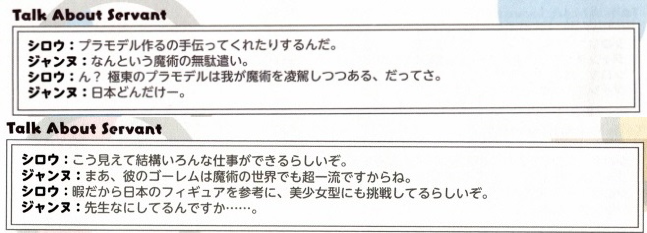 Talk About Servant
シロウ：プラモデル作るの手伝ってくれたりするんだ。
ジャンヌ：なんという魔術の無駄遣い。
シロウ：ん？ 極東のプラモデルは我が魔術を凌駕しつつある、だってさ。
ジャンヌ：日本どんだけー。
Talk About Servant
シロウ：こう見えて結構いろんな仕事ができるらしいぞ。
ジャンヌ：まあ、彼のゴーレムは魔術の世界でも超一流ですからね。
シロウ：暇だから日本のフィギュアを参考に、美少女型にも挑戦してるらしいぞ。
ジャンヌ：先生なにしてるんですか……。